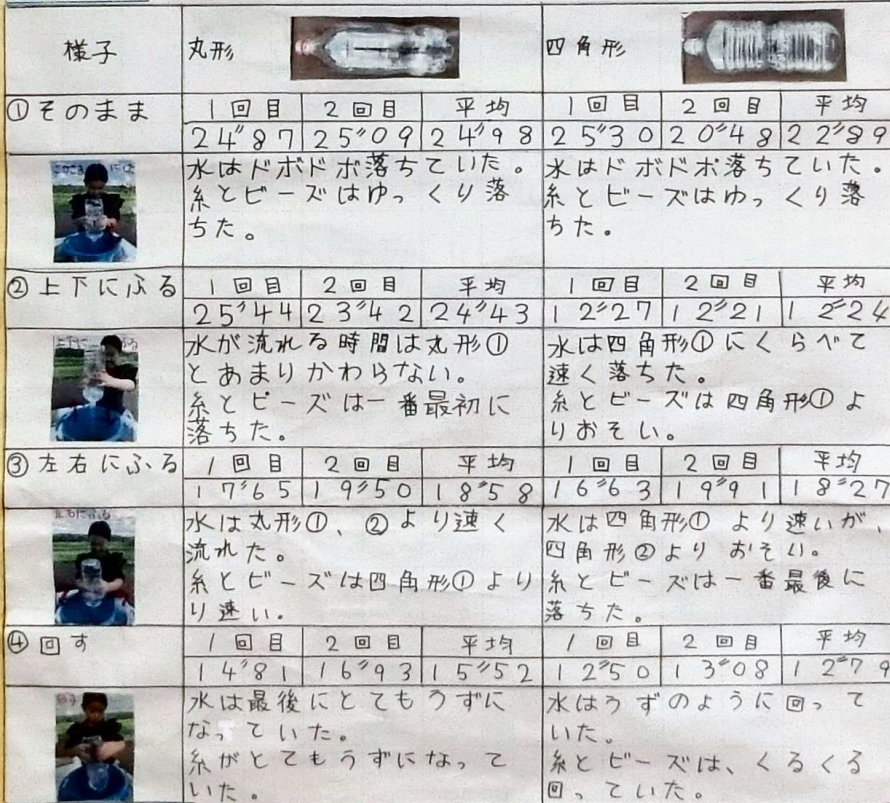 様子 丸形 四角形
①そのまま 1回目 2回目 平均 1回目 2回目 平均
24"87 25"09 24"98 25"30 20"48 22"89
水はドボドボ落ちていた。
糸とビーズはゆっくり落
ちた。
水はドボドボ落ちていた。
糸とビーズはゆっくり落
ちた。
②上下にふる 1回目 2回目 平均 1回目 2回目 平均
25"44 23"42 24"43 12"27 12"21 12"24
水が流れる時間は丸形①
とあまりかわらない。
糸とビーズは一番最初に
落ちた。
水は四角形①にくらべて
速く落ちた。
糸とビーズは四角形①よ
りおそい。
③左右にふる 1回目 2回目 平均 1回目 2回目 平均
17"65 19"50 18"58 16"63 19"91 18"27
水は丸形①、②より速く
流れた。
糸とビーズは四角形①より
り速い。
水は四角形①より速いが、
四角形②よりおそい。
糸とビーズは一番最後に
落ちた。
④回す 1回目 2回目 平均 1回目 2回目 平均
14"81 16"93 15"52 12"50 13"08 12"79
水は最後にとてもうずに
なっていた。
糸がとてもうずになって
いた。
水はうずのように回って
いた。
糸とビーズは、くるくる
回っていた。